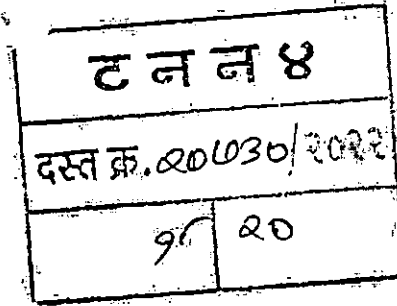 ट न न ४
दस्त क्र. २०७३०/२०२२
१८ २०